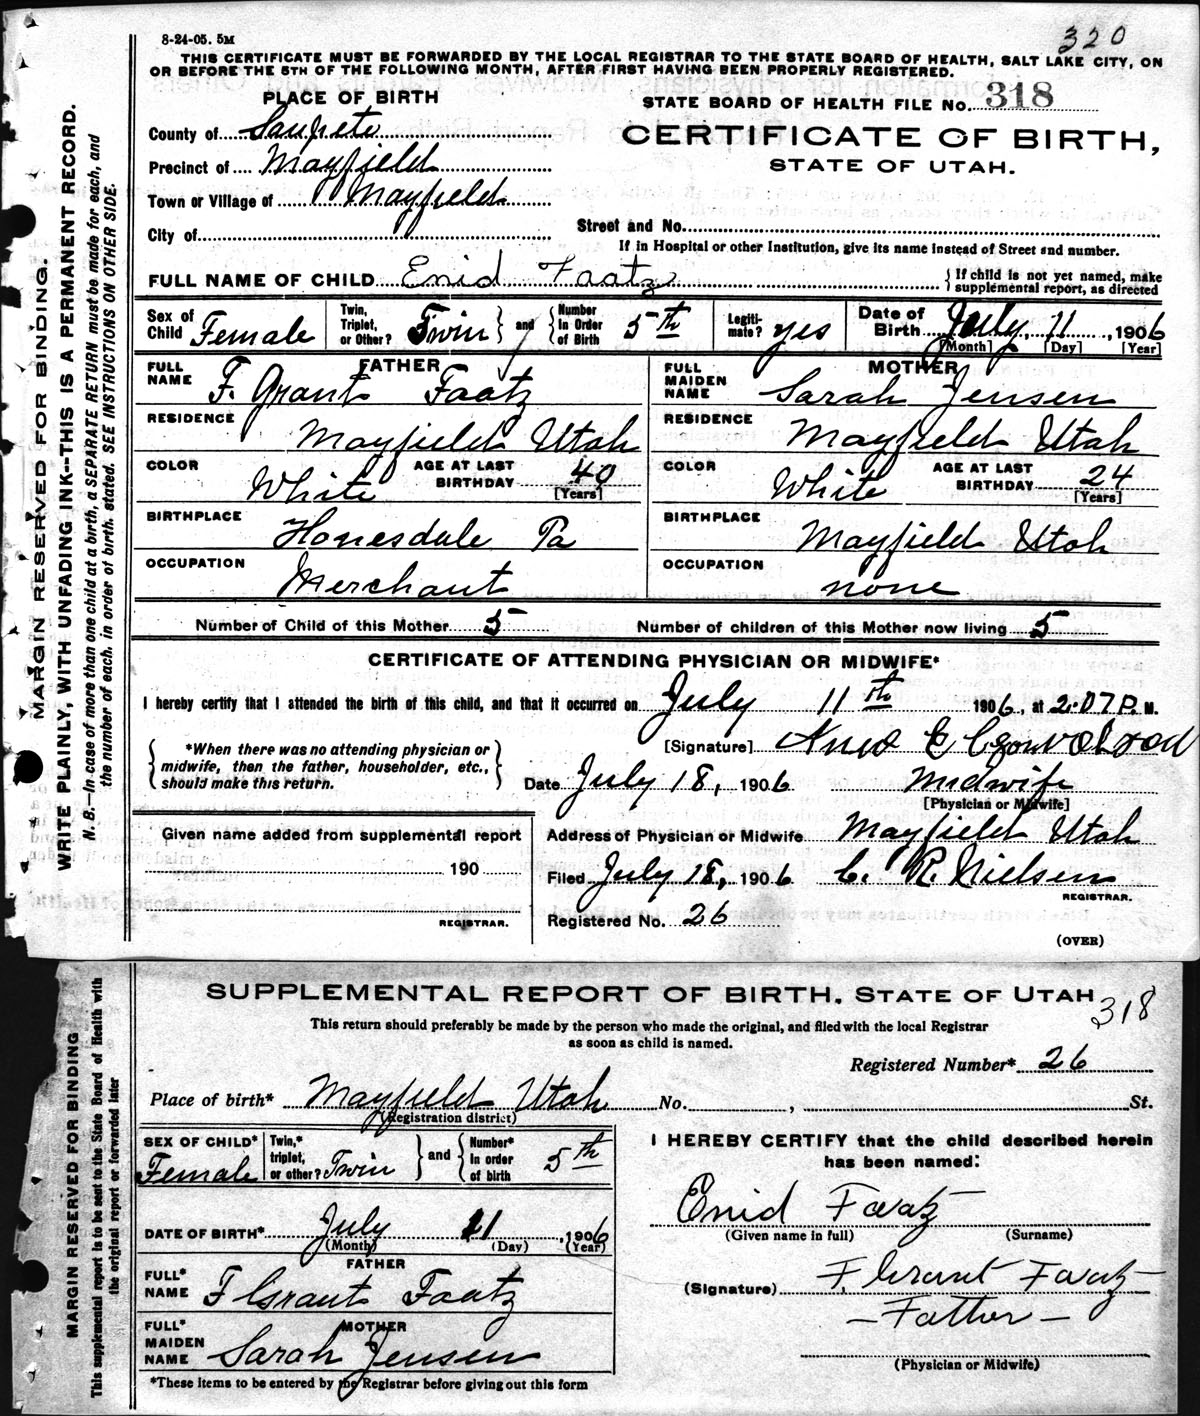 320
8-24-05. 5M
THIS CERTIFICATE MUST BE FORWARDED BY THE LOCAL REGISTRAR TO THE STATE BOARD OF HEALTH, SALT LAKE CITY, ON
OR BEFORE THE 5TH OF THE FOLLOWING MONTH, AFTER FIRST HAVING BEEN PROPERLY REGISTERED.
PLACE OF BIRTH
STATE BOARD OF HEALTH FILE No. 318
County of Sanpete
CERTIFICATE OF BIRTH,
Precinct of Mayfield
STATE OF UTAH.
Town or Village of Mayfield
City of
Street and No.
If in Hospital or other Institution, give its name instead of Street and number.
FULL NAME OF CHILD Enid Faatz
If child is not yet named, make
supplemental report, as directed
Sex of Child Female
Twin, Triplet, or Other? Twin and Number In Order of Birth 5th
Legitimate? yes
Date of Birth July 11, 1906
[Month] [Day] [Year]
FATHER
FULL NAME F. Grant Faatz
RESIDENCE Mayfield Utah
COLOR White AGE AT LAST BIRTHDAY 40 [Years]
BIRTHPLACE Honesdale Pa
OCCUPATION Merchant
MOTHER
FULL MAIDEN NAME Sarah Jensen
RESIDENCE Mayfield Utah
COLOR White AGE AT LAST BIRTHDAY 24 [Years]
BIRTHPLACE Mayfield Utah
OCCUPATION none
Number of Child of this Mother 5 Number of children of this Mother now living 5
CERTIFICATE OF ATTENDING PHYSICIAN OR MIDWIFE*
I hereby certify that I attended the birth of this child, and that it occurred on July 11th 1906, at 2.07 P. M.
*When there was no attending physician or
midwife, then the father, householder, etc.,
should make this return.
[Signature]
Date July 18, 1906 Midwife
[Physician or Midwife]
Given name added from supplemental report
190
REGISTRAR.
Address of Physician or Midwife Mayfield Utah
Filed July 18, 1906 C. R. Nielsen
REGISTRAR.
Registered No. 26
(OVER)
MARGIN RESERVED FOR BINDING.
WRITE PLAINLY, WITH UNFADING INK--THIS IS A PERMANENT RECORD.
N. B.--In case of more than one child at a birth, a SEPARATE RETURN must be made for each, and
the number of each, in order of birth, stated. SEE INSTRUCTIONS ON OTHER SIDE.
SUPPLEMENTAL REPORT OF BIRTH. STATE OF UTAH
318
This return should preferably be made by the person who made the original, and filed with the local Registrar
as soon as child is named.
Registered Number* 26
Place of birth* Mayfield Utah No. , St.
(Registration district)
SEX OF CHILD* Female
Twin,* triplet, or other? Twin and Number* in order of birth 5th
DATE OF BIRTH* July 11, 1906
(Month) (Day) (Year)
FATHER
FULL* NAME F Grant Faatz
MOTHER
FULL* MAIDEN NAME Sarah Jensen
*These items to be entered by the Registrar before giving out this form
I HEREBY CERTIFY that the child described herein
has been named:
Enid Faatz
(Given name in full) (Surname)
(Signature) F, Grant Faatz
— Father —
(Physician or Midwife)
MARGIN RESERVED FOR BINDING
This supplemental report is to be sent to the State Board of Health with
the original report or forwarded later